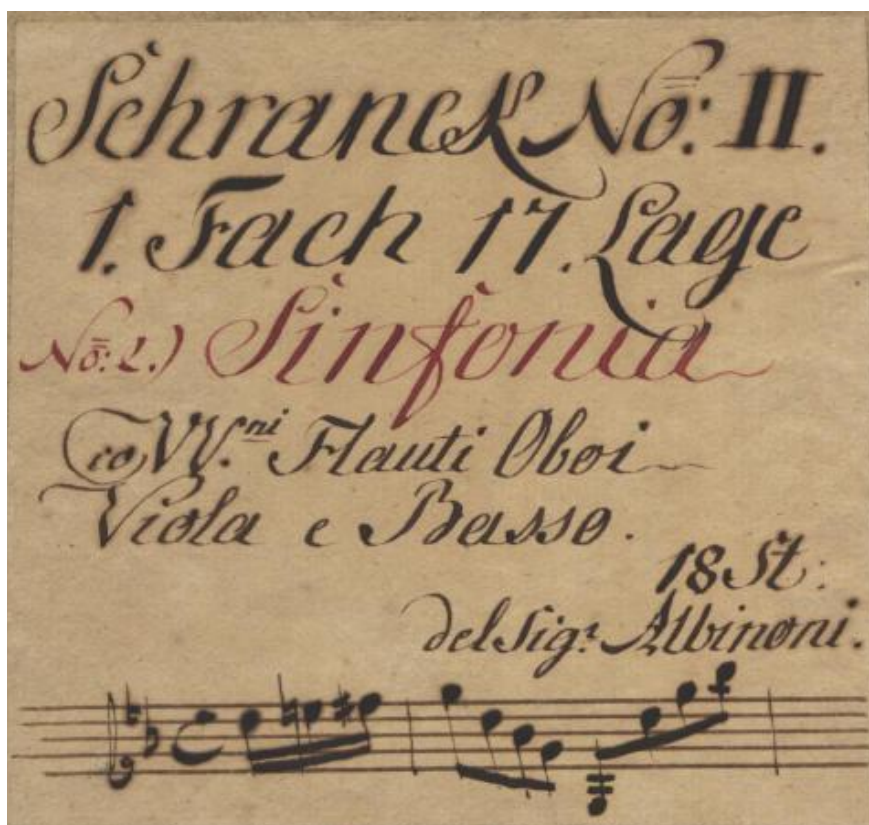 Schranck No: II.
1. Fach 17. Lage
No: 2.) Sinfonia
co VV.ni Flauti Oboi
Viola e Basso.
18 St:
del Sigr. Albinoni.